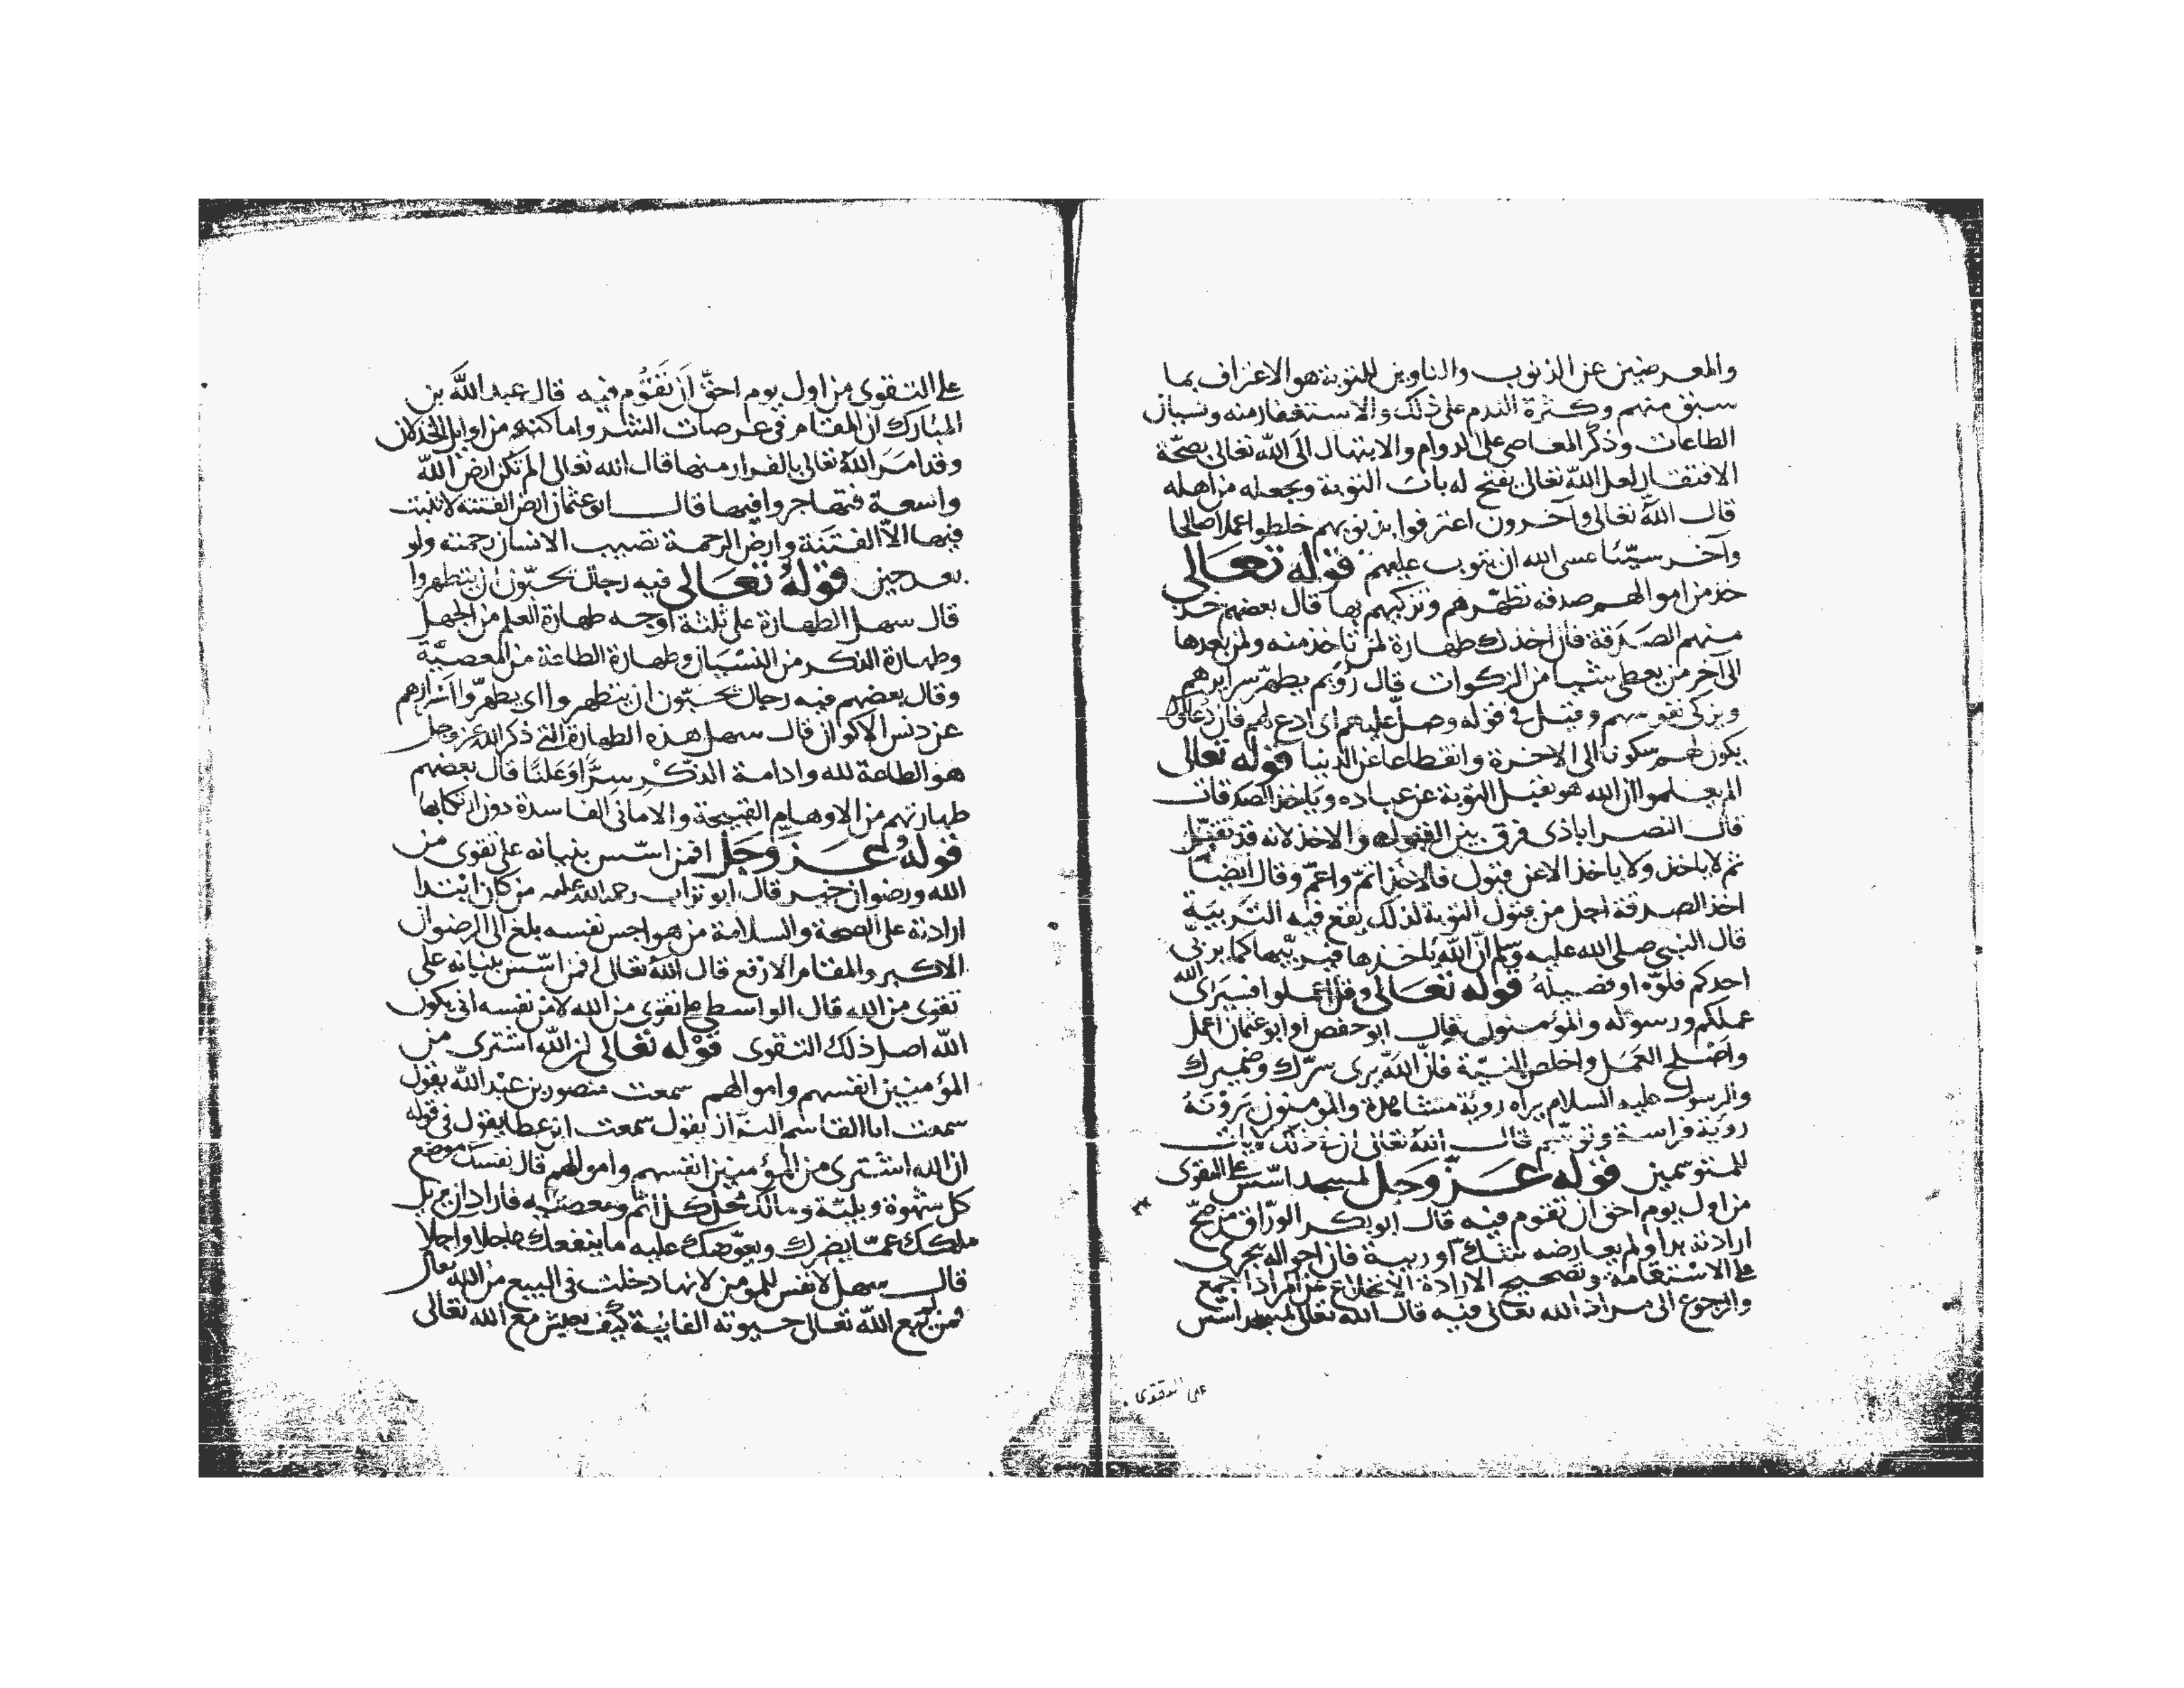 والمعرضين عن الذنوب والناوين للتوبة هو الاعتراف بما
سبق منهم وكثرة الندم على ذلك والاستغفار منه ونسيان
الطاعات وذكر المعاصي على الدوام والابتهال الى الله تعالى بصحّة
الافتقار لعل الله تعالى يفتح له باب التوبة ويجعله من اهله
قال الله تعالى وآخرون اعترفوا بذنوبهم خلطوا عملا صالحا
وآخر سيّئا عسى الله ان يتوب عليهم قوله تعالى
خذ من اموالهم صدقة تطهّرهم وتزكيهم بها قال بعضهم خذ
منهم الصدقة فان اخذك طهارة لمن تاخذ منه ولمن بعدها
الى آخر من يعطى شيا من الزكوات قال رويم يطهّر سرايرهم
ويزكى نفوسهم وقيل في قوله وصلّ عليهم اى ادع لهم فان دعاك
يكون لهم سكونا الى الاخرة وانقطاعا عن الدنيا قوله تعالى
الم يعلموا ان الله هو يقبل التوبة عن عباده وياخذ الصدقات
قال النصراباذى فرق بين القبول والاخذ لانه قد يقبل
ثم لا ياخذ ولا ياخذ الا عن قبول فالاخذ اتمّ واعمّ وقال ايضا
اخذ الصدقة اجل من قبول التوبة لذلك يقع فيه التربية
قال النبي صلى الله عليه وسلم انّ الله ياخذها فيربّيها كما يربّى
احدكم فلوّه او فصيله قوله تعالى وقل اعملوا فسيرى الله
عملكم ورسوله والمؤمنون قال ابو حفص او ابو عثمان اعمل
واصلح العمل واخلص النيّة فانّ الله يرى سرّك وضميرك
والرسول عليه السلام يراه روية مشاهدة والمومنون يرونه
روية فراسة وتوسّم قال الله تعالى ان في ذلك لايات
للمتوسمين قوله عزّ وجل لمسجد اسّس على التقوى
من اول يوم احق ان تقوم فيه قال ابو بكر الورّاق من صحّ
ارادته بدا ولم يعارضه شكّ او ريبة فان احواله يجرى
على الاستقامة وتصحيح الارادة الانخلاع عن مراده اجمع
والرجوع الى مراد الله تعالى فيه قال الله تعالى لمسجد اسّس
على التقوى
على التقوى من اول يوم احقّ ان تقوم فيه قال عبد الله بن
المبارك ان المقام في عرصات الشر واماكنه من اوايل الخذلان
وقد امر الله تعالى بالفرار منها قال الله تعالى الم تكن ارض الله
واسعة فتهاجروا فيها قال ابو عثمان ارض الفتنة لا تنبت
فيها الّا الفتنة وارض الرحمة تصيب الانسان رحمته ولو
بعد حين قوله تعالى فيه رجال يحبّون ان يتطهروا
قال سهل الطهارة على ثلثة اوجه طهارة العلم من الجهل
وطهارة الذكر من النسيان وطهارة الطاعة من المعصيّة
وقال بعضهم فيه رجال يحبّون ان يتطهروا اى يطهّروا اسرارهم
عن دنس الاكوان قال سهل هذه الطهارة التي ذكر الله عز وجل
هو الطاعة لله وادامة الذكر سرّا وعلنًا قال بعضهم
طهارتهم من الاوهام القبيحة والامانى الفاسدة دون ارتكابها
قوله عز وجل افمن اسّس بنيانه على تقوى من
الله ورضوان خير قال ابو تراب رحمه الله عليه من كان ابتدا
ارادته على الصحة والسلامة من هواجس نفسه بلغ الى الرضوان
الاكبر والمقام الارفع قال الله تعالى افمن اسّس بنيانه على
تقوى من الله قال الواسطي على تقوى من الله لا من نفسه اى يكون
الله اصل ذلك التقوى قوله تعالى ان الله اشترى من
المؤمنين انفسهم واموالهم سمعت منصور بن عبد الله يقول
سمعت ابا القاسم البزّاز يقول سمعت ابن عطا يقول في قوله
ان الله اشترى من المؤمنين انفسهم واموالهم قال نفسك موضع
كل شهوة وبليّة ومالك محل كل اثم ومعصية فاراد ان يزيل
ملكك عمّا يضرك ويعوّضك عليه ما ينفعك عاجلا واجلا
قال سهل لا نفس للمومن لانها دخلت في البيع من الله تعالى
فمن لم يبع الله تعالى حيوته الفانية كيف يعيش مع الله تعالى